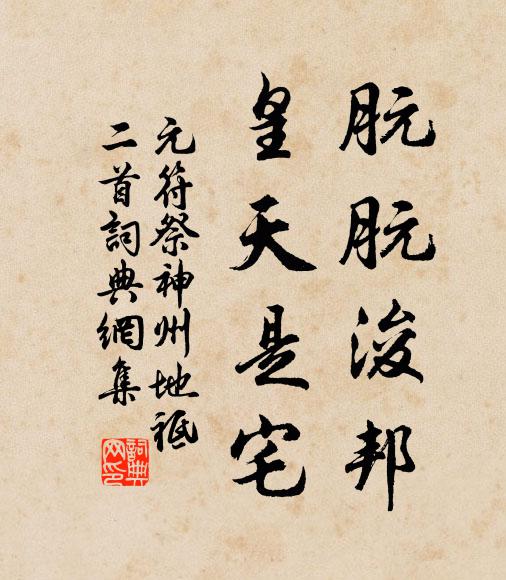 朊朊浚邦
皇天是宅
元符祭神州地祗
二首詞典網集
詞典
网印